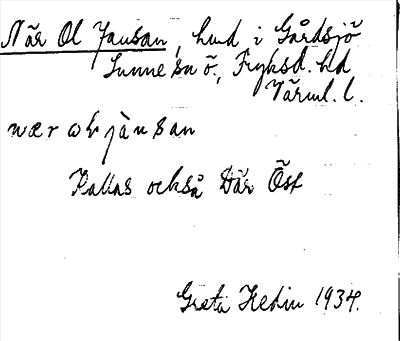 När Ol Jansan, hmd i Gårdsjö
Sunne sn ö., Fryksd. hd
Värml. l.
nær ol jànsan
Kallas också Där Öst
Greta Hedin 1934.